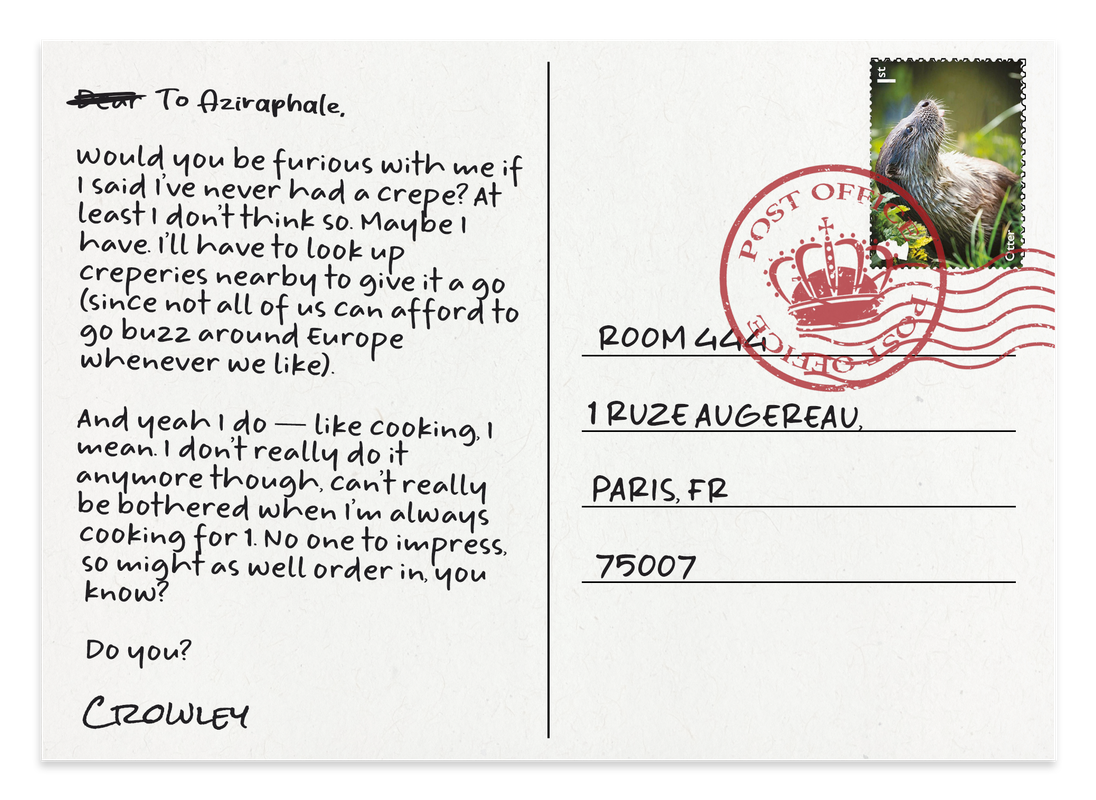 Dear To Aziraphale,
Would you be furious with me if
I said I've never had a crepe? At
least I don't think so. Maybe I
have. I'll have to look up
creperies nearby to give it a go
(since not all of us can afford to
go buzz around Europe
whenever we like).
And yeah I do — like cooking, I
mean. I don't really do it
anymore though, can't really
be bothered when I'm always
cooking for 1. No one to impress,
so might as well order in, you
know?
Do you?
CROWLEY
1st
Otter
POST OFFICE
POST OFFICE
ROOM 444
1 RUZE AUGEREAU,
PARIS, FR
75007